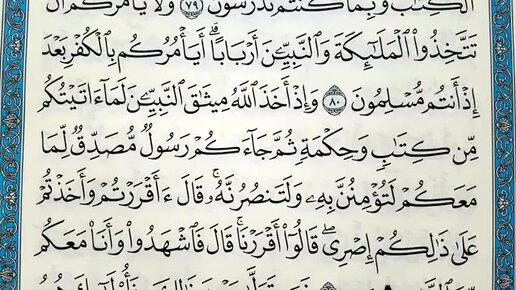 الْكِتَٰبَ وَبِمَا كُنتُمْ تَدْرُسُونَ ٧٩ وَلَا يَأْمُرَكُمْ أَن
تَتَّخِذُوا۟ الْمَلَٰٓئِكَةَ وَالنَّبِيِّـۧنَ أَرْبَابًا ۗ أَيَأْمُرُكُم بِالْكُفْرِ بَعْدَ
إِذْ أَنتُم مُّسْلِمُونَ ٨٠ وَإِذْ أَخَذَ اللَّهُ مِيثَٰقَ النَّبِيِّـۧنَ لَمَآ ءَاتَيْتُكُم
مِّن كِتَٰبٍ وَحِكْمَةٍ ثُمَّ جَآءَكُمْ رَسُولٌ مُّصَدِّقٌ لِّمَا
مَعَكُمْ لَتُؤْمِنُنَّ بِهِۦ وَلَتَنصُرُنَّهُۥ ۚ قَالَ ءَأَقْرَرْتُمْ وَأَخَذْتُمْ
عَلَىٰ ذَٰلِكُمْ إِصْرِى ۖ قَالُوٓا۟ أَقْرَرْنَا ۚ قَالَ فَاشْهَدُوا۟ وَأَنَا۠ مَعَكُم